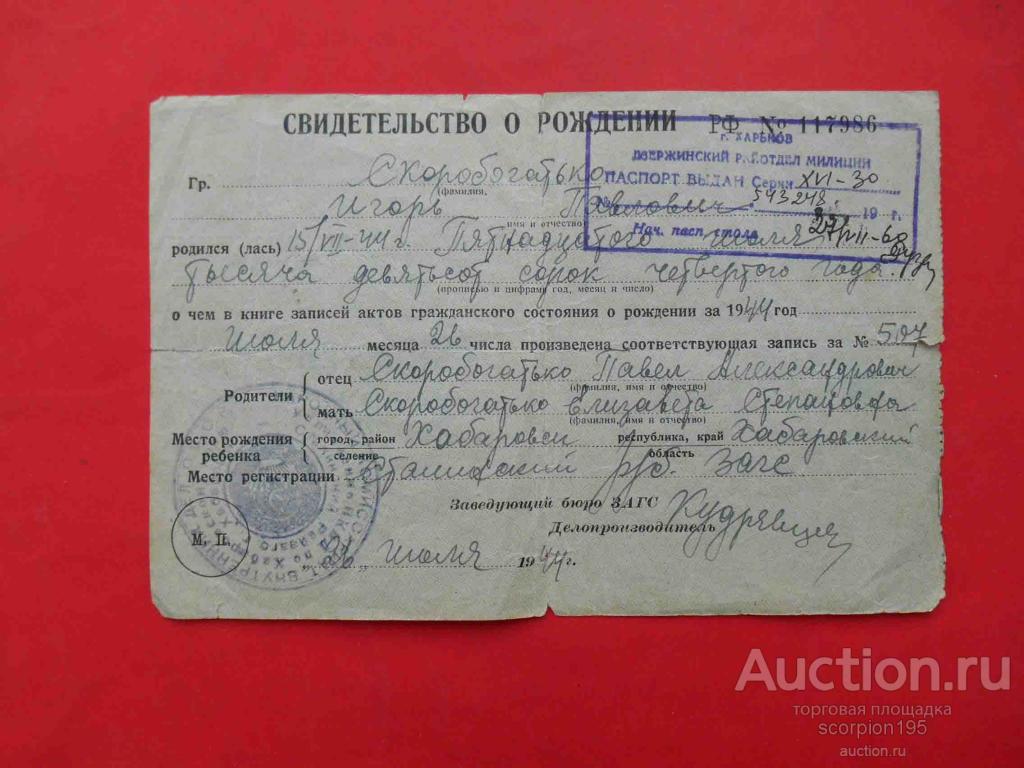 СВИДЕТЕЛЬСТВО О РОЖДЕНИИ РФ № 117986
г. ХАРЬКОВ
ДЗЕРЖИНСКИЙ РАЙОТДЕЛ МИЛИЦИИ
ПАСПОРТ ВЫДАН Серия XVI-30
№ 543248 19 г.
Нач. пасп. стола 27/VII-60
Гр. Скоробогатько
(фамилия,
Игорь Павлович
имя и отчество)
родился (лась) 15/VII-44 г. Пятнадцатого июля
тысяча девятьсот сорок четвертого года
(прописью и цифрами год, месяц и число)
о чем в книге записей актов гражданского состояния о рождении за 1944 год
июля месяца 26 числа произведена соответствующая запись за № 507
Родители
отец Скоробогатько Павел Александрович
(фамилия, имя и отчество)
мать Скоробогатько Елизавета Степановна
(фамилия, имя и отчество)
Место рождения ребенка
город, район Хабаровск республика, край Хабаровский
селение область
Место регистрации Сталинский рб. Загс
Заведующий бюро ЗАГС
Делопроизводитель
М. П.
"26" июля 1944 г.
Auction.ru
торговая площадка
scorpion195
auction.ru